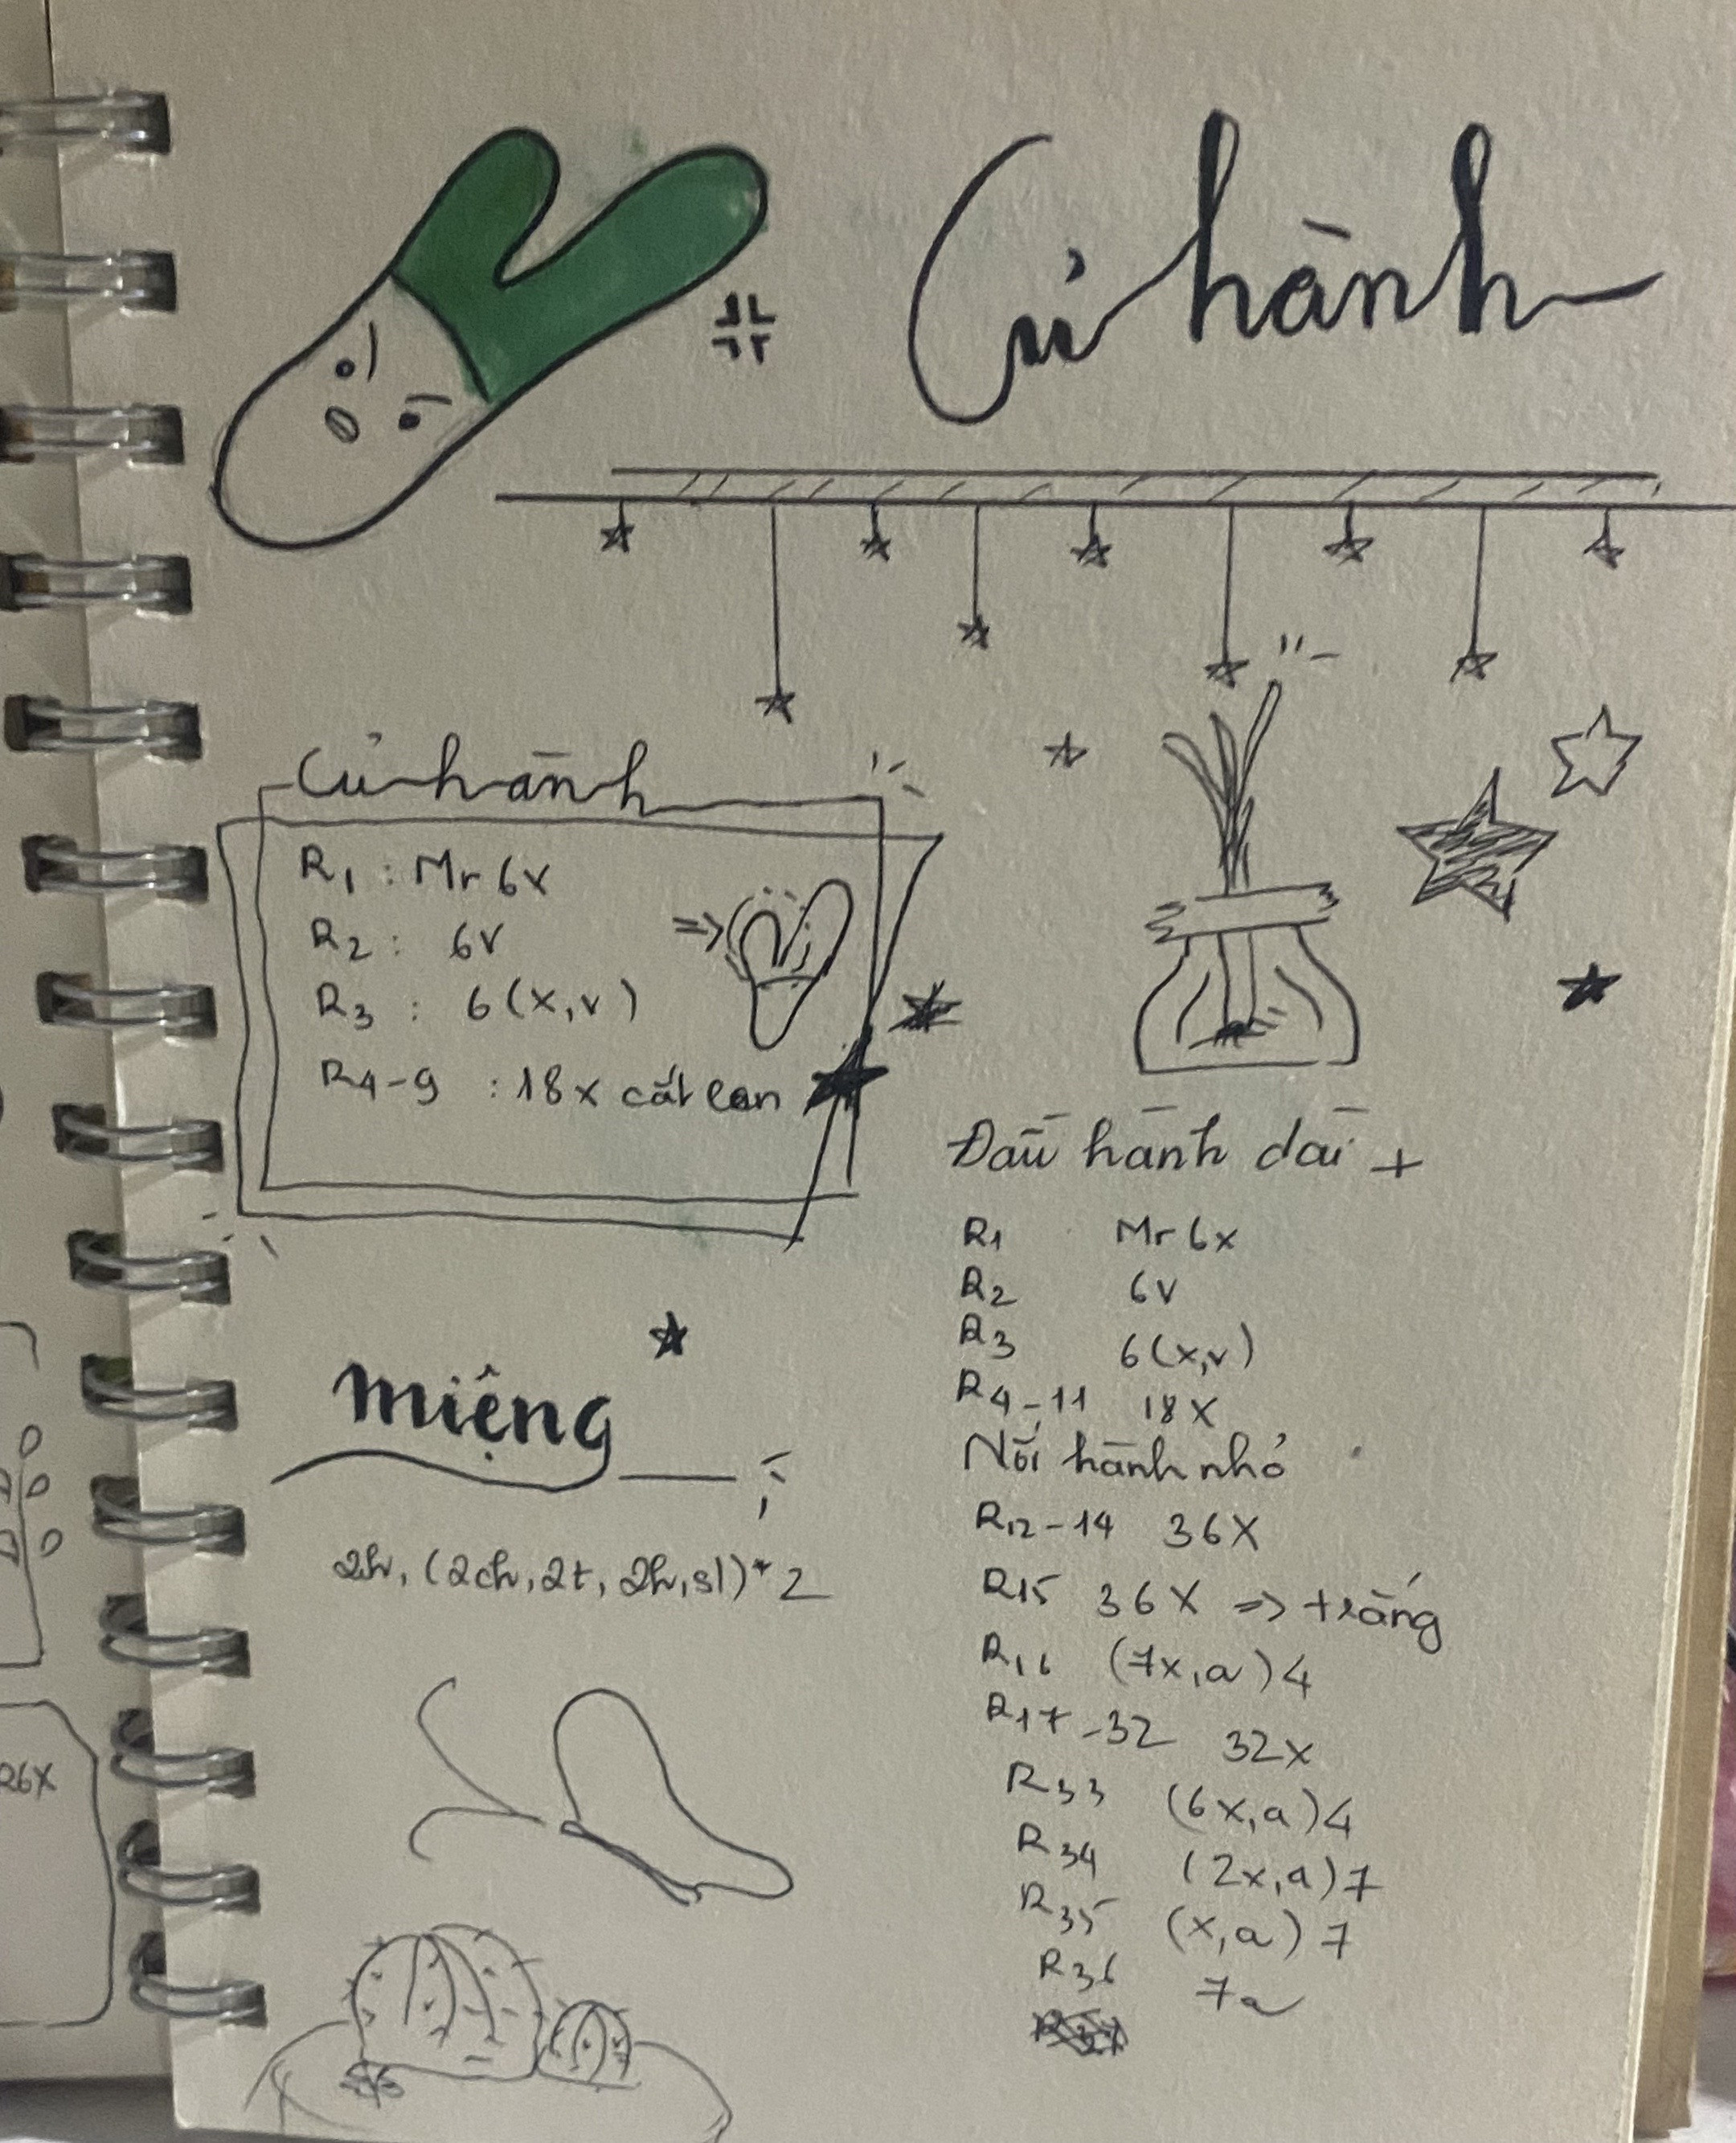 Củ hành
Củ hành
R1 : Mr 6x
R2 : 6v
R3 : 6(x,v)
R4-9 : 18x cắt len
miệng
2h, (2ch, 2t, 2h, sl)*2
Đầu hành dài +
R1 Mr 6x
R2 6v
R3 6(x,v)
R4-11 18x
Nối hành nhỏ
R12-14 36x
R15 36x => trắng
R16 (7x,a)4
R17-32 32x
R33 (6x,a)4
R34 (2x,a)7
R35 (x,a)7
R36 7a
26x